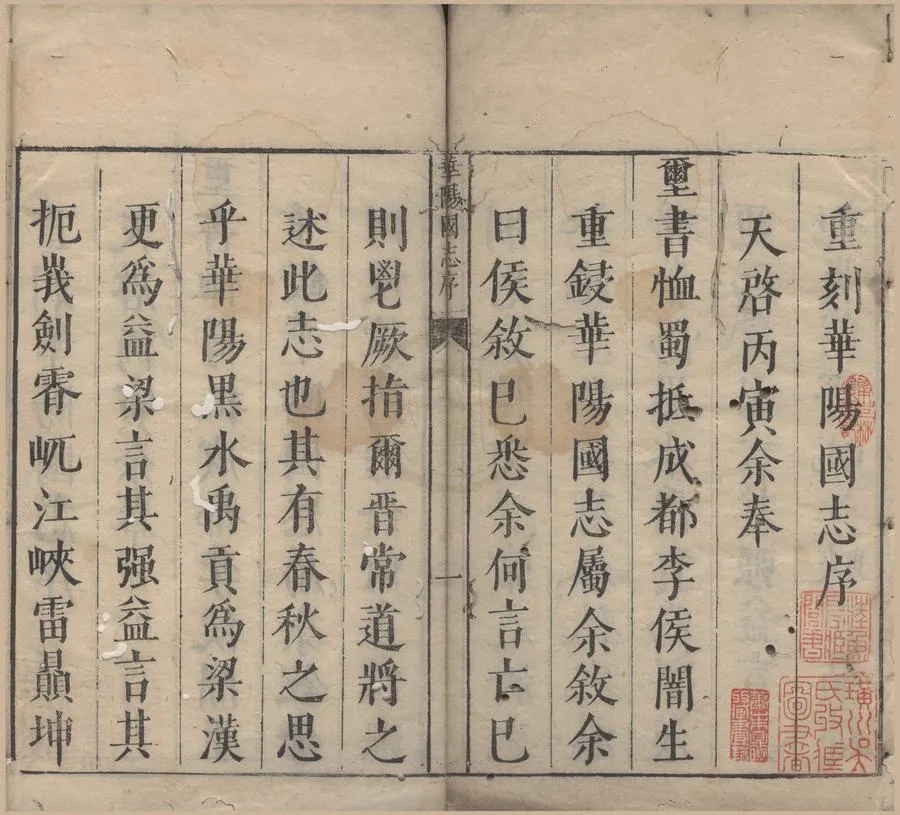 重刻華陽國志序
天啓丙寅余奉
璽書恤蜀抵成都李侯闇生
重鋟華陽國志屬余敘余
曰侯敘巳悉余何言亡巳
華陽國志序
一
則鬯厥指爾晉常道將之
述此志也其有春秋之思
乎華陽黑水禹貢爲梁漢
更爲益梁言其强益言其
扼峩劍霄屼江峽雷顚坤